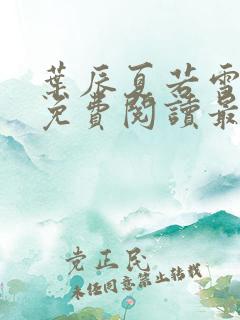 葉辰夏若雪
免費閱讀最
党正民
未经同意禁止转载